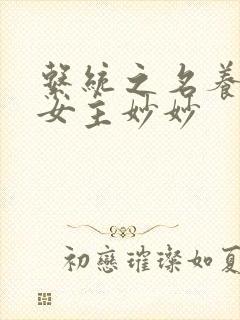 繫統之名養
女主妙妙
初戀璀璨如夏